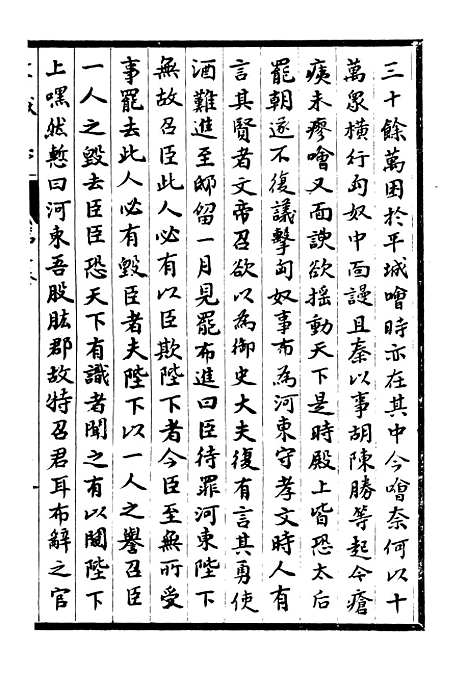 三十餘萬困於平城噲時亦在其中今噲奈何以十
萬衆橫行匈奴中面謾且秦以事胡陳勝等起今瘡
痍未瘳噲又面諛欲搖動天下是時殿上皆恐太后
罷朝遂不復議擊匈奴事布為河東守孝文時人有
言其賢者文帝召欲以為御史大夫復有言其勇使
酒難近至邸留一月見罷布進曰臣待罪河東陛下
無故召臣此人必有以臣欺陛下者今臣至無所受
事罷去此人必有毀臣者夫陛下以一人之譽召臣
一人之毀去臣臣恐天下有識者聞之有以闚陛下
上嘿然慙曰河東吾股肱郡故特召君耳布辭之官